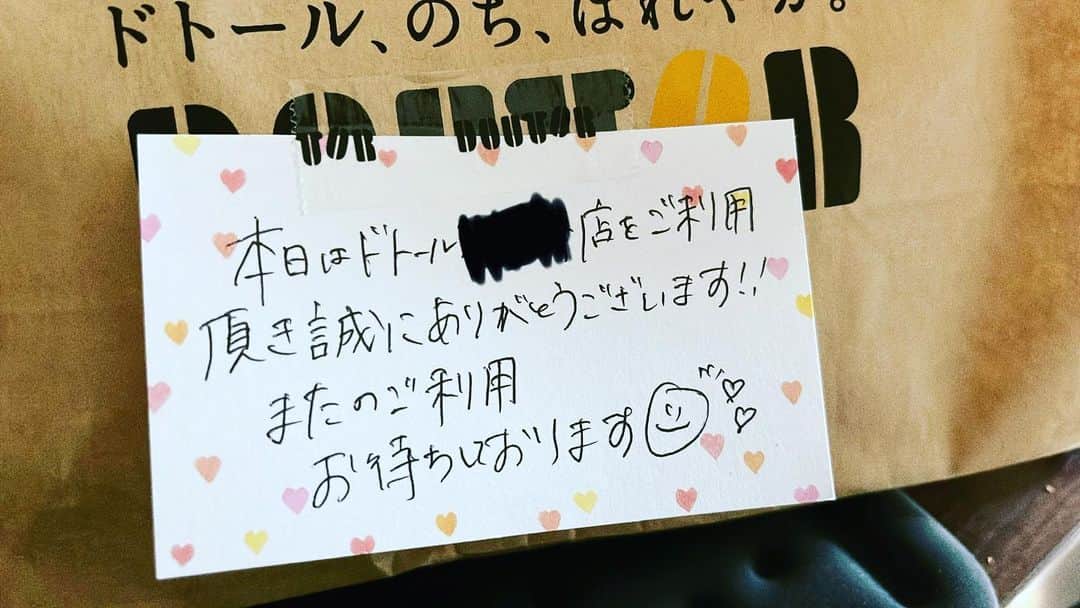 ドトール、のち、はれやか。
DOUTOR
TOR DOUTOR
本日はドトール 店をご利用
頂き誠にありがとうございます!!
またのご利用
お待ちしております